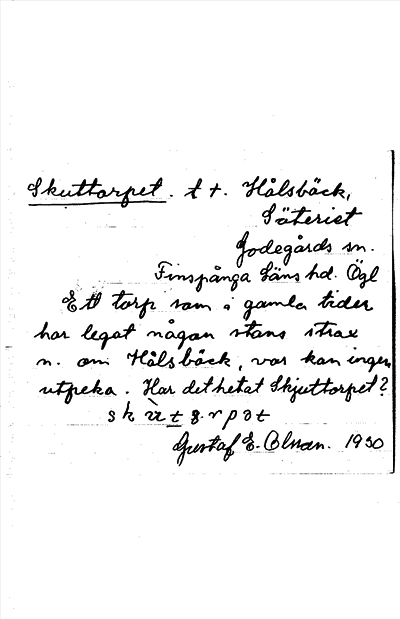 Skuttorpet. t t. Hålsbäck,
Säteriet
Godegårds sn.
Finspånga Läns hd. Ögl
Ett torp som i gamla tider
har legat någon stans strax
n. om Hålsbäck, var kan ingen
utpeka. Har det hetat Skjuttorpet?
Gustaf E. Olsson. 1930